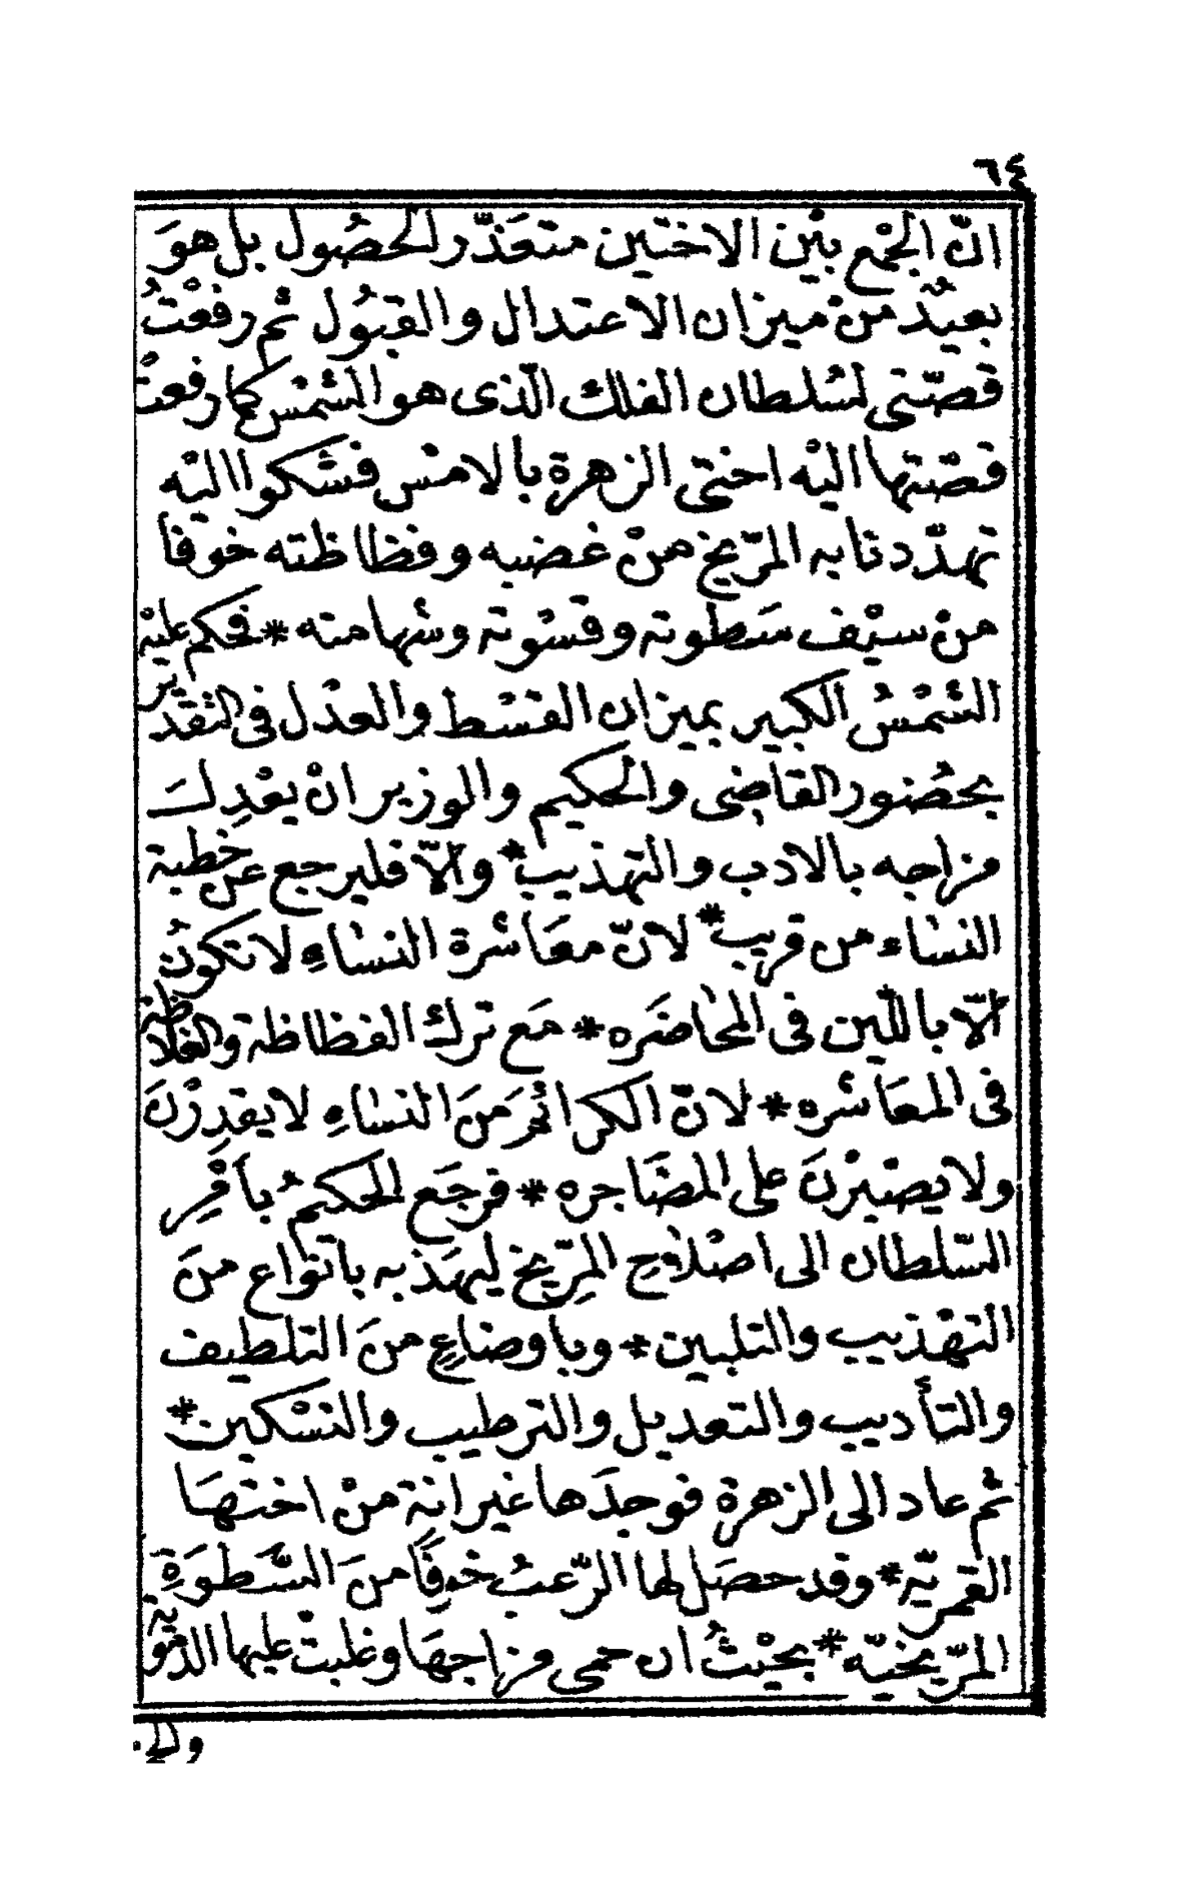 ٦٤
انّ الجمْع بيْن الاختين متعَذّر الحصُول بل هوَ
بعيُدٌ منْ ميزان الاعتدال والقبُول ثم رفعْتُ
قصّتى لسُلطان الفلك الّذى هو الشمْس كما رفعتْ
قصّتها اليْه اختى الزهرة بالامْس فشكوا اليْه
تهدّدنا به المرّيخ منْ غضبه وفظاظته خوفا
منْ سيْف سَطوته وقسْوته وشهامته * فحكم عليْه
الشمْسُ الكبير بميزان القسْط والعدْل فى التقدير
بحضُور القاضى والحكيم والوزير انْ يعْدِلَ
مزاجه بالادب والتهذيب * والّا فليرجع عن خطبة
النساء من قريب * لانّ معَاشرة النسَاءِ لا تكونُ
الّا باللّين فى المحَاضَره * مَع ترك الفظاظة والغلاظة
فى المعَاشره * لانّ الكرائمَ منَ النسَاءِ لا يقدِرْنَ
ولا يصْبرْنَ على المضَاجره * فرجَع الحكيمُ بامْرِ
السّلطان الى اصْلاحِ المرّيخ ليهَذبه بانوَاع منَ
التهْذيب والتليين * وباوضاعٍ منَ التلطيف
والتأديب والتعديل والترطيب والتسْكين *
ثم عاد الى الزهرة فوجدَها غيرانة منْ اختهَا
القمريّه * وقد حصَل لها الرّعبُ خوفًا منَ السَّطوَةِ
المرّيخيّه * بحيْثُ ان حمى مزاجهَا وغلبتْ عليها الدمويّة